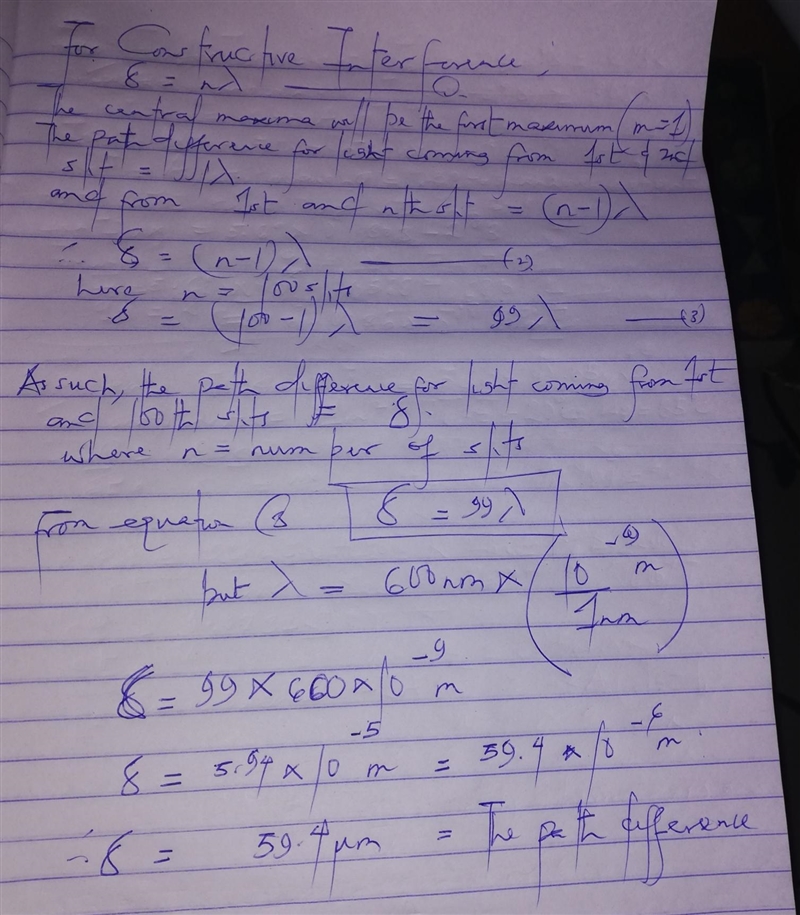 For Constructive Interference,
δ = nλ ———— ①
The central maxima will be the first maximum (m=1)
The path difference for light coming from 1st & 2nd
slit = 1λ
and from 1st and nth slit = (n-1)λ
∴ δ = (n-1)λ ———— (2)
here n = 100 slits
δ = (100-1)λ = 99λ —— (3)
As such, the path difference for light coming from 1st
and 100th slits = δ.
where n = number of slits
From equation (3 δ = 99λ
but λ = 600nm × (10⁻⁹ m / 1nm)
δ = 99 × 600 × 10⁻⁹ m
δ = 5.94 × 10⁻⁵ m = 59.4 × 10⁻⁶ m.
∴ δ = 59.4 μm = The path difference